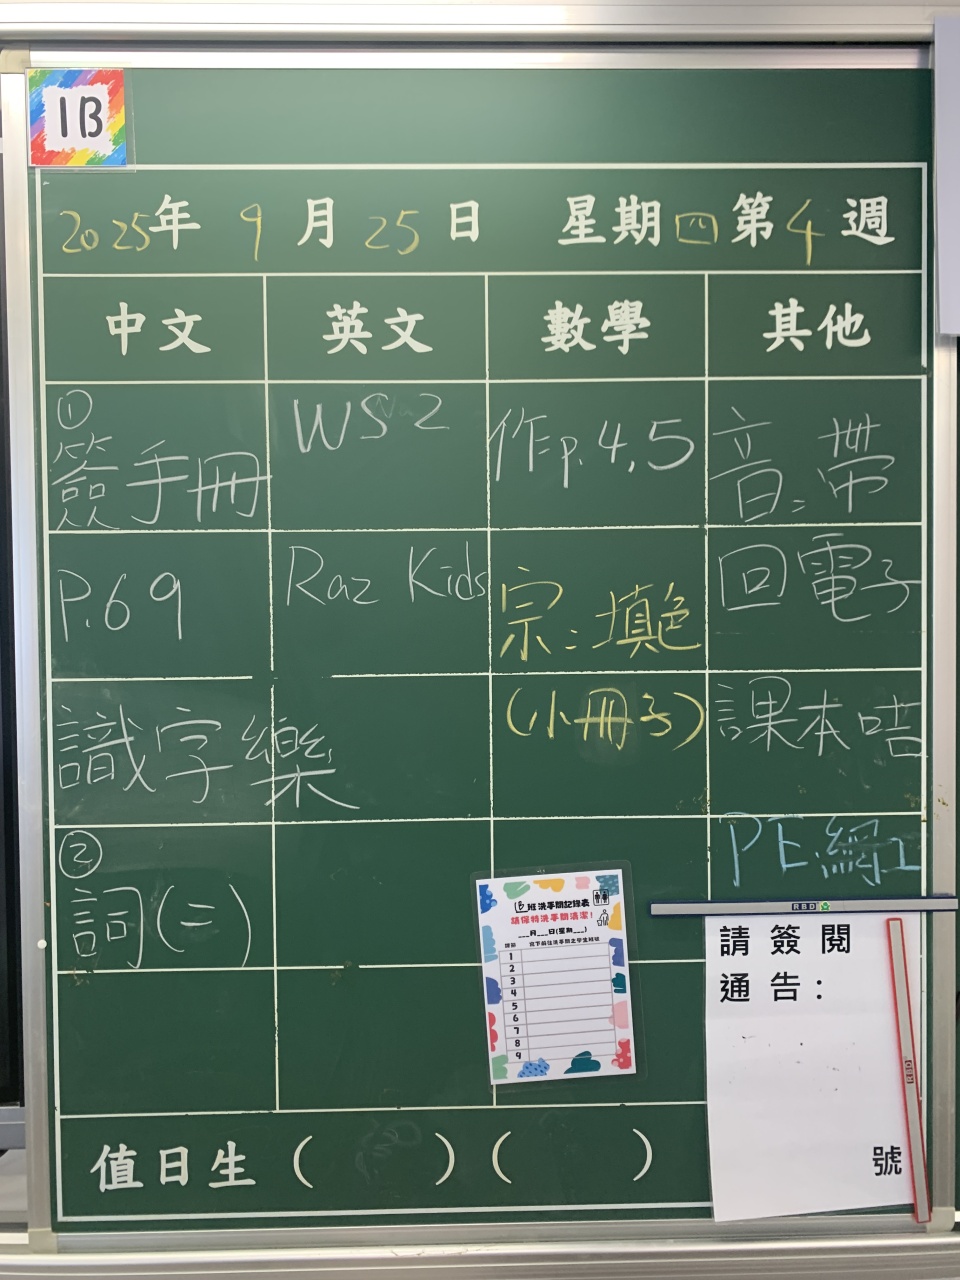 1B
2025年 9月25日 星期四 第4週
中文 英文 數學 其他
①
簽手冊
P.69
識字樂
②
詞(二)
WS2
Raz Kids
作p.4,5
宗:填色
(小冊子)
音:帶
回電子
課本唔
PE:網工
1B班洗手間記錄表
請保持洗手間清潔!
___月___日(星期___)
課節 寫下前往洗手間之學生班號
1
2
3
4
5
6
7
8
9
RBD
請簽閱
通告:
號
值日生( )( )